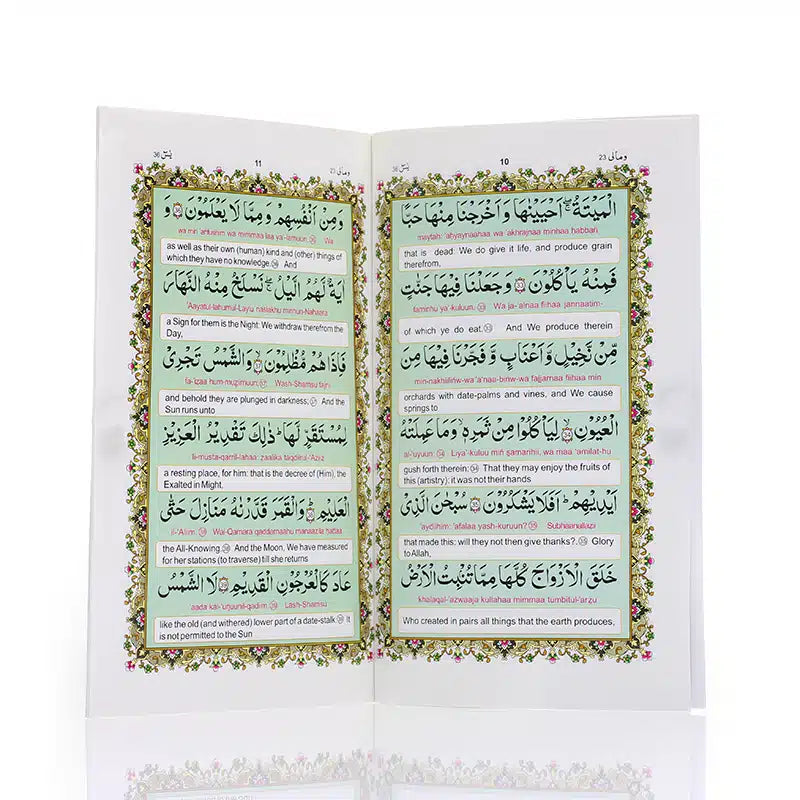 ومالی 23 10 یٰسٓ 36
الْمَيْتَةُ ۖ اَحْيَيْنٰهَا وَ اَخْرَجْنَا مِنْهَا حَبًّا
maytah: 'aḥyaynaahaa wa 'akhrajnaa minhaa ḥabbañ
that is dead: We do give it life, and produce grain
therefrom,
فَمِنْهُ يَاْكُلُوْنَ ۳۳ وَ جَعَلْنَا فِيْهَا جَنّٰتٍ
faminhu ya'-kuluun. 33 Wa ja-'alnaa fiihaa jannaatim-
of which ye do eat. 33 And We produce therein
مِّنْ نَّخِيْلٍ وَّ اَعْنَابٍ وَّ فَجَّرْنَا فِيْهَا مِنَ
min-nakhiiliñw-wa'a'naa-biñw-wa fajjarnaa fiihaa min
orchards with date-palms and vines, and We cause
springs to
الْعُيُوْنِ ۳۴ لِيَاْكُلُوْا مِنْ ثَمَرِهٖ ۙ وَمَا عَمِلَتْهُ
al-'uyuun 34 Liya'-kuluu miñ s̱amarihii, wa maa 'amilat-hu
gush forth therein: 34 That they may enjoy the fruits of
this (artistry): it was not their hands
اَيْدِيْهِمْ ؕ اَفَلَا يَشْكُرُوْنَ ۳۵ سُبْحٰنَ الَّذِىْ
'aydihim: 'afalaa yash-kuruun? 35 Subhaanallazii
that made this: will they not then give thanks?. 35 Glory
to Allah,
خَلَقَ الْاَزْوَاجَ كُلَّهَا مِمَّا تُنْۢبِتُ الْاَرْضُ
khalaqal-'azwaaja kullahaa mimmaa tumbitul-'arzu
Who created in pairs all things that the earth produces,
ومالی 23 11 یٰسٓ 36
وَ مِنْ اَنْفُسِهِمْ وَ مِمَّا لَا يَعْلَمُوْنَ ۳۶ وَ
wa min 'anfusihim wa mimmaa laa ya'-lamuun. 36 Wa
as well as their own (human) kind and (other) things of
which they have no knowledge. 36 And
اٰيَةٌ لَّهُمُ الَّيْلُ ۖ نَسْلَخُ مِنْهُ النَّهَارَ
'Aayatul-lahumul-Laylu naslakhu minhun-Nahaara
a Sign for them is the Night: We withdraw therefrom the
Day,
فَاِذَا هُمْ مُّظْلِمُوْنَ ۳۷ وَالشَّمْسُ تَجْرِىْ
fa-'izaa hum-muẓlimuun; 37 Wash-Shamsu tajri
and behold they are plunged in darkness; 37 And the
Sun runs unto
لِمُسْتَقَرٍّ لَّهَا ؕ ذٰلِكَ تَقْدِيْرُ الْعَزِيْزِ
li-musta-qarril-lahaa: zaalika taqdiirul-'Aziiz
a resting place, for him: that is the decree of (Him), the
Exalted in Might,
الْعَلِيْمِ ؕ ۳۸ وَالْقَمَرَ قَدَّرْنٰهُ مَنَازِلَ حَتّٰى
il-'Aliim. 38 Wal-Qamara qaddarnaahu manaazila ḥattaa
the All-Knowing. 38 And the Moon, We have measured
for her stations (to traverse) till she returns
عَادَ كَالْعُرْجُوْنِ الْقَدِيْمِ ۳۹ لَا الشَّمْسُ
'aada kal-'urjuunil-qadiim. 39 Lash-Shamsu
like the old (and withered) lower part of a date-stalk 39 It
is not permitted to the Sun